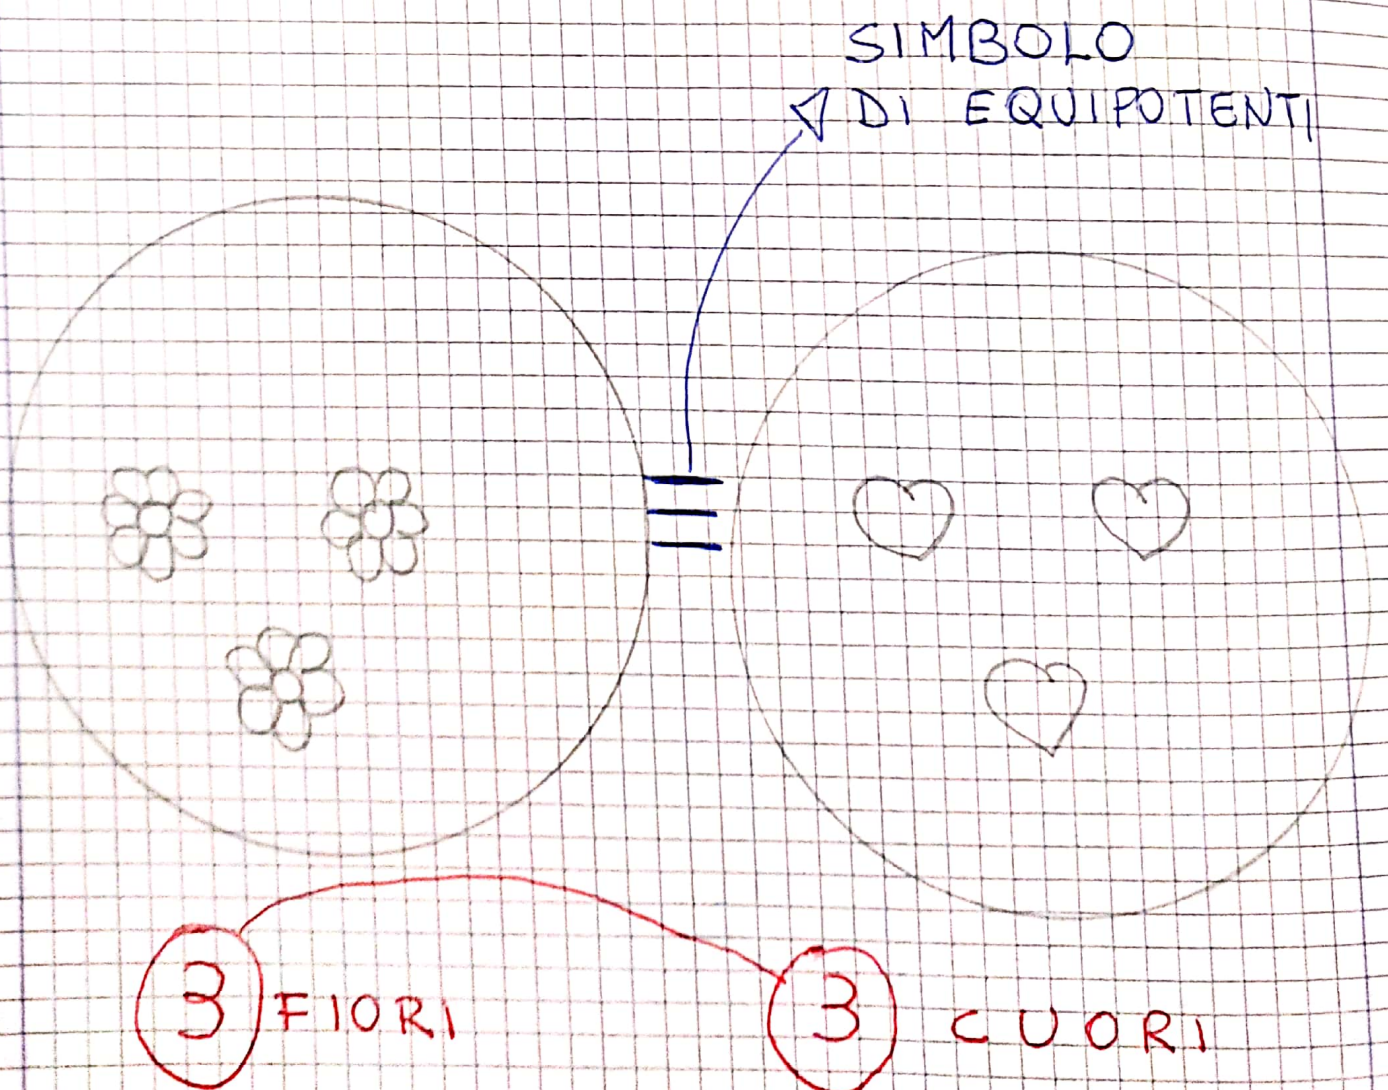 SIMBOLO
DI EQUIPOTENTI
≡
3 FIORI
3 CUORI